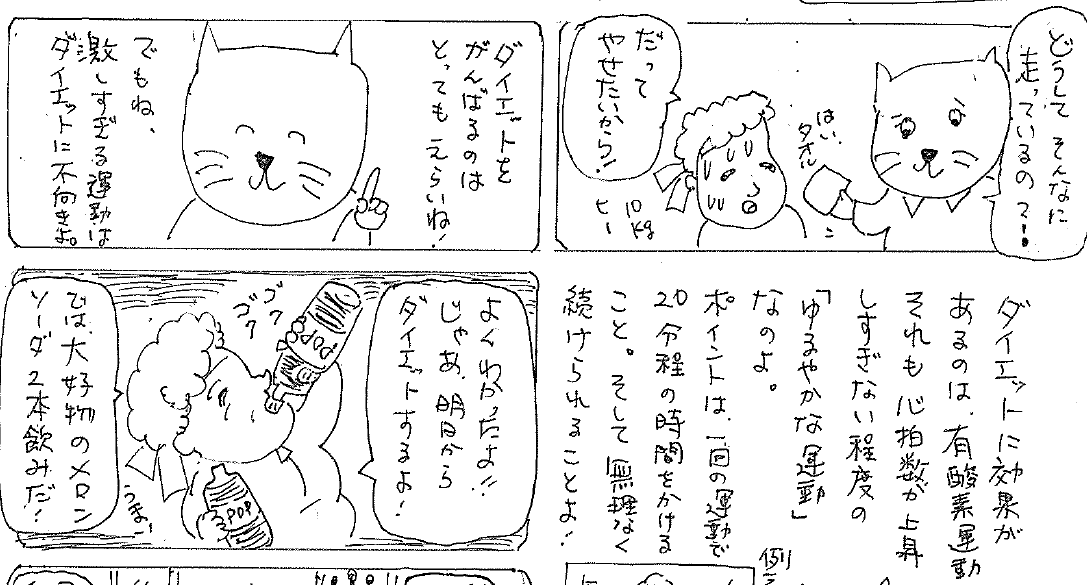 どうして そんなに
走っているの?!
はい、
タオル
だって
やせたいから!
10
kg
ヒー
ダイエットを
がんばるのは
とっても えらいね!
でもね、
激しすぎる運動は
ダイエットに不向きよ。
ダイエットに効果が
あるのは、有酸素運動
それも心拍数が上昇
しすぎない程度の
「ゆるやかな運動」
なのよ。
ポイントは、一回の運動で
20分程の時間をかける
こと。そして無理なく
続けられることよ!
よくわかったよ!!
じゃあ、明日から
ダイエットするよ!
ゴク
ゴク
POP
POP
うまい
では、大好物のメロン
ソーダ2本飲みだ!